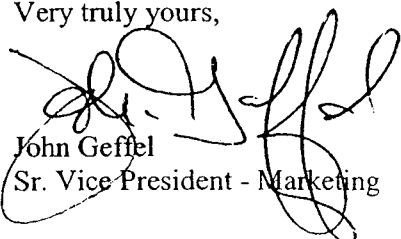 Very truly yours,
John Geffel
Sr. Vice President - Marketing